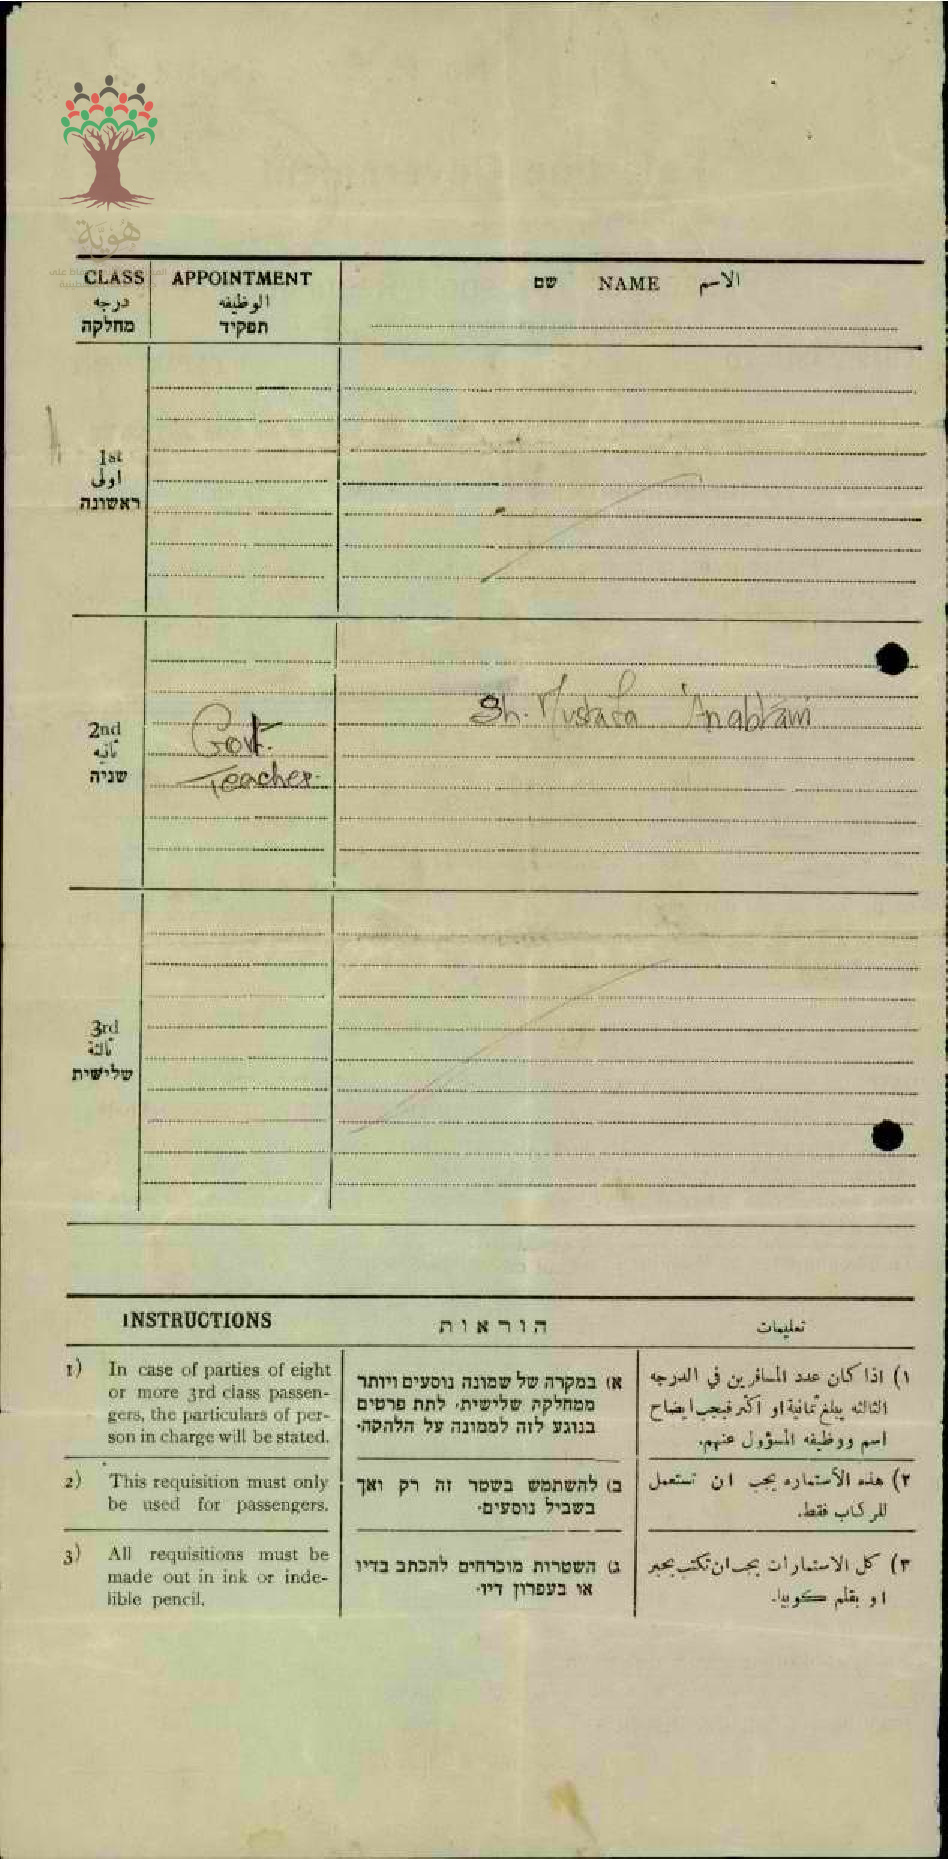 هُوِيَّة
CLASS APPOINTMENT שם NAME الاسم
درجه الوظيفه
מחלקה תפקיד
1st
اولى
ראשונה
Sh. Mustafa 'Anabtawi
2nd Govt.
ثانيه
שניה Teacher.
3rd
ثالثة
שלישית
INSTRUCTIONS הוראות تعليمات
1) In case of parties of eight
or more 3rd class passen-
gers, the particulars of per-
son in charge will be stated.
א) במקרה של שמונה נוסעים ויותר
ממחלקה שלישית, לתת פרטים
בנוגע לזה לממונה על הלהקה.
١) اذا كان عدد المسافرين في الدرجه
الثالثه يبلغ ثمانية او أكثر فيجب ايضاح
اسم ووظيفه المسؤول عنهم.
2) This requisition must only
be used for passengers.
ב) להשתמש בשטר זה רק ואך
בשביל נוסעים.
٢) هذه الأستماره يجب ان تستعمل
للركاب فقط.
3) All requisitions must be
made out in ink or inde-
lible pencil.
ג) השטרות מוכרחים להכתב בדיו
או בעפרון דיו.
٣) كل الاستمارات يجب ان تكتب بحبر
او بقلم كوبيا.